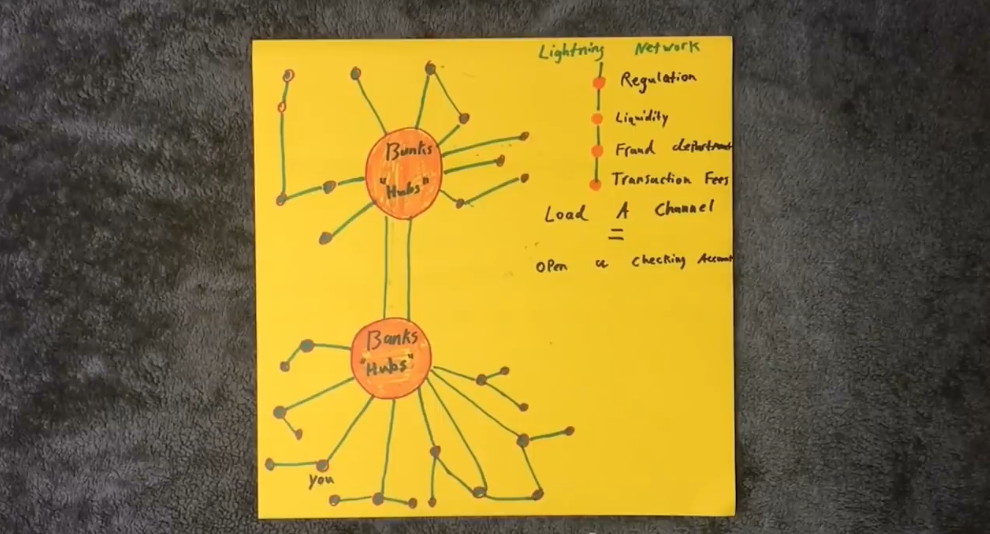 Lightning Network
Regulation
Liquidity
Fraud department
Transaction Fees
Load A Channel
=
Open a checking Account
Banks
"Hubs"
Banks
"Hubs"
You